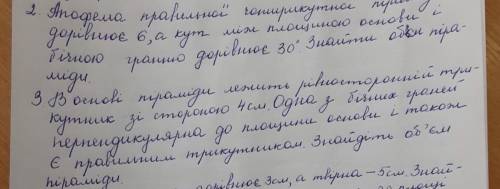 2. Апофема правильної чотирикутної
дорівнює 6, а кут між площиною основи і
бічною гранню дорівнює 30° Знайти обєм піра-
міди.
3 В основі піраміди лежить рівносторонній три-
кутник зі стороною 4см. Одна з бічних граней
перпендикулярна до площини основи і також
є правильним трикутником. Знайдіть об'єм
піраміди.
дорівнює 3см, а твірна – 5см. Знай-
площі